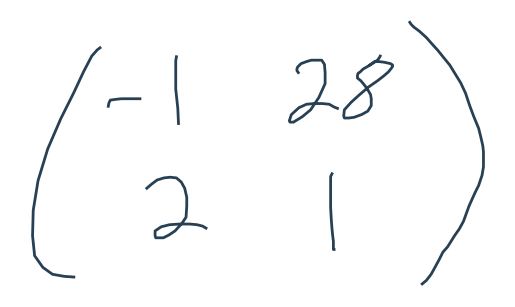 -1 28
2 1